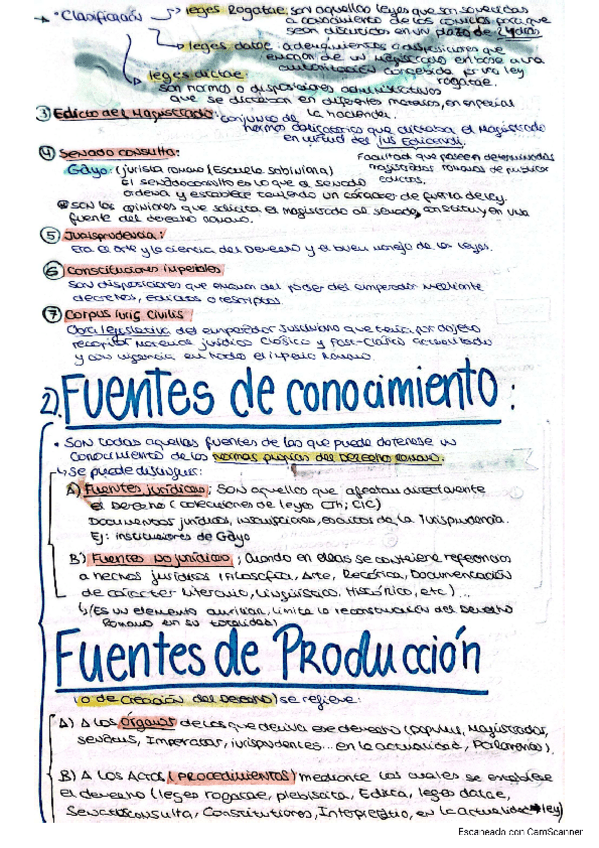 * · Clasificación → leges Rogatae: son aquellas leyes que son sometidas
a conocimiento de los comicios para que
sean discutidas en un plazo de 24 días
→ leges datae: ordenamientos o disposiciones que
emanan de un Magistrado en base a una
autorización concebida por una ley
rogatae.
→ leges dictae:
son normas o disposiciones administrativas
que se dictaban en diferentes materias, en especial
la hacienda.
③ Edicto del Magistrado: conjunto de
normas obligatorias que dictaba el Magistrado
en virtud del Ius Edicendi.
④ Senado consulta:
Facultad que poseen determinados
magistrados romanos de publicar
edictos.
Gayo: (jurista romano (Escuela sabiniana)
El senadoconsulto es lo que el senado
ordena y establece teniendo un carácter de fuerza de ley.
son las opiniones que solicita el magistrado al senado, constituyen una
fuente del derecho romano.
⑤ Jurisprudencia:
Era el arte y la ciencia del Derecho y el buen manejo de las leyes.
⑥ Constituciones imperiales
son disposiciones que emanan del poder del emperador mediante
decretos, edictos o rescriptos.
⑦ Corpus Iuris Civilis
Obra legislativa del emperador Justiniano que tenía por objeto
recopilar materia jurídica Clásica y Post-Clásica actualizado
y con vigencia en todo el imperio Romano.
2). Fuentes de conocimiento:
· Son todas aquellas fuentes de las que puede obtenerse un
conocimiento de las normas propias del Derecho romano.
↳ Se puede distinguir:
A) Fuentes jurídicas; Son aquellas que afectan directamente
el Derecho (colecciones de leyes CTh; CIC)
Documentos jurídicos, inscripciones, escritos de la Jurisprudencia.
Ej: instituciones de Gayo
B) Fuentes No jurídicas; Cuando en ellas se contiene referencias
a hechos jurídicos (Filosofía, Arte, Retórica, Documentación
de carácter literario, lingüístico, Histórico, etc)...
↳ (Es un elemento auxiliar, limita la reconstrucción del Derecho
Romano en su totalidad)
Fuentes de Producción
(o de creación del Derecho) se refiere:
A) A los órganos de los que deriva ese derecho (populus, Magistrados,
senatus, Imperator, iurisprudentes... en la actualidad, Parlamento).
B) A los Actos (PROCEDIMIENTOS) mediante los cuales se establece
el derecho (leges rogatae, plebiscita, Edicta, leges datae,
Senadoconsulta, Constitutiones, Interpretatio, en la actualidad → ley)
Escaneado con CamScanner